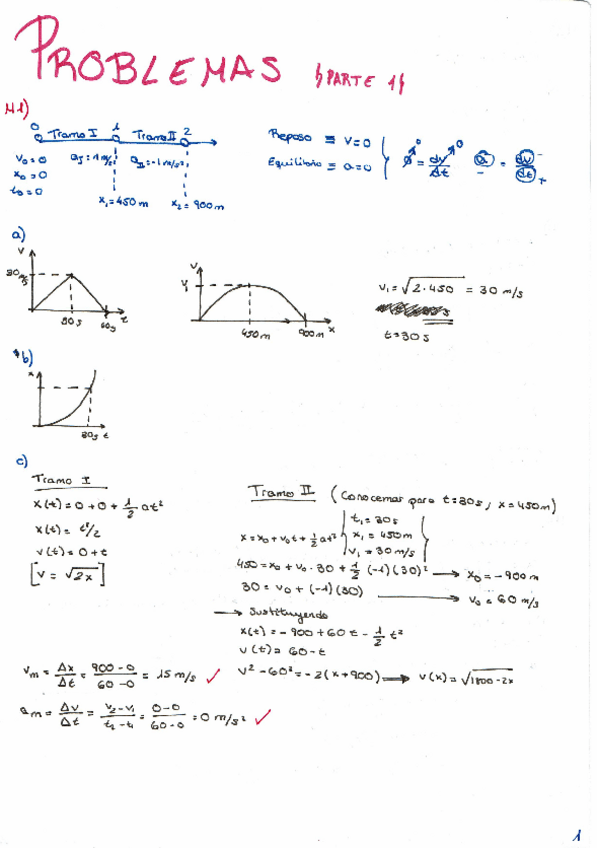 PROBLEMAS (PARTE 1)
M1)
0 Tramo I 1 Tramo II 2
v₀=0 a_I=1 m/s² a_II=-1 m/s²
x₀=0
t₀=0
x₁=450m x₂=900m
Reposo ≡ v=0
Equilibrio ≡ a=0
a = dv/dt
a)
v
30 m/s
30s 60s t
v
v₁
450m 900m x
v₁=√2·450 = 30 m/s
t=30s
b)
x
30s t
c)
Tramo I
x(t)=0+0+1/2 at²
x(t)= t²/2
v(t)=0+t
[v=√2x]
Tramo II (Conocemos para t=30s, x=450m)
x=x₀+v₀t+1/2 at²
t₁=30s
x₁=450m
v₁=30 m/s
450=x₀+v₀·30+1/2 (-1)(30)² → x₀=-900m
30=v₀+(-1)(30) → v₀=60 m/s
→ Sustituyendo
x(t)=-900+60t-1/2 t²
v(t)=60-t
v²-60²=-2(x+900) → v(x)=√1800-2x
v_m = Δx/Δt = 900-0/60-0 = 15 m/s ✓
a_m = Δv/Δt = v₂-v₁/t₂-t₁ = 0-0/60-0 = 0 m/s² ✓
1